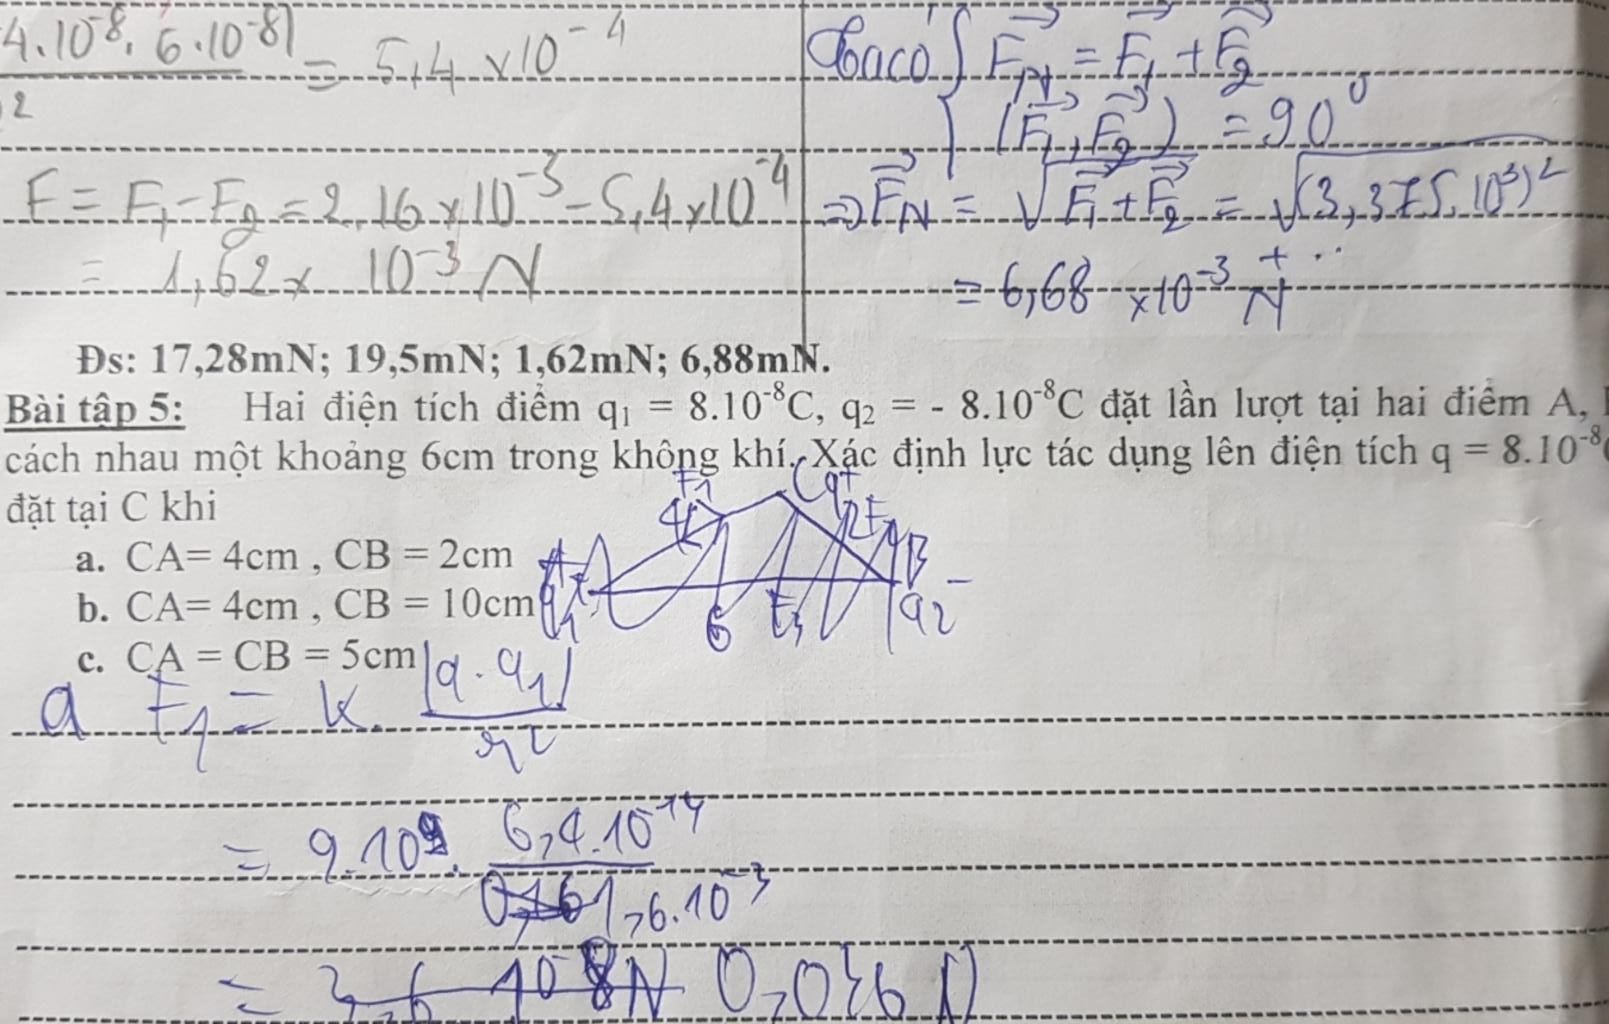 4.10⁻⁸. 6.10⁻⁸| = 5,4 x10⁻⁴
2
F = F₁ - F₂ = 2,16 x 10⁻³ - 5,4 x 10⁻⁴
= 1,62 x 10⁻³ N
Ta có { F⃗N = F⃗₁ + F⃗₂
(F⃗₁, F⃗₂) = 90⁰
⇒ F⃗N = √F⃗₁ + F⃗₂ = √(3,375.10³)² + ..
= 6,68 x10⁻³ N
Đs: 17,28mN; 19,5mN; 1,62mN; 6,88mN.
Bài tập 5: Hai điện tích điểm q₁ = 8.10⁻⁸C, q₂ = - 8.10⁻⁸C đặt lần lượt tại hai điểm A,
cách nhau một khoảng 6cm trong không khí. Xác định lực tác dụng lên điện tích q = 8.10⁻⁸
đặt tại C khi
F₁ C q+
a. CA= 4cm , CB = 2cm
4 2 A B
b. CA= 4cm , CB = 10cm
q₁ 6 q₂ -
c. CA = CB = 5cm
a F₁ = k. |q.q₁| / r²
= 9.10⁹. 6,4.10⁻¹⁴ / 1,6.10⁻³
= 0,036 N